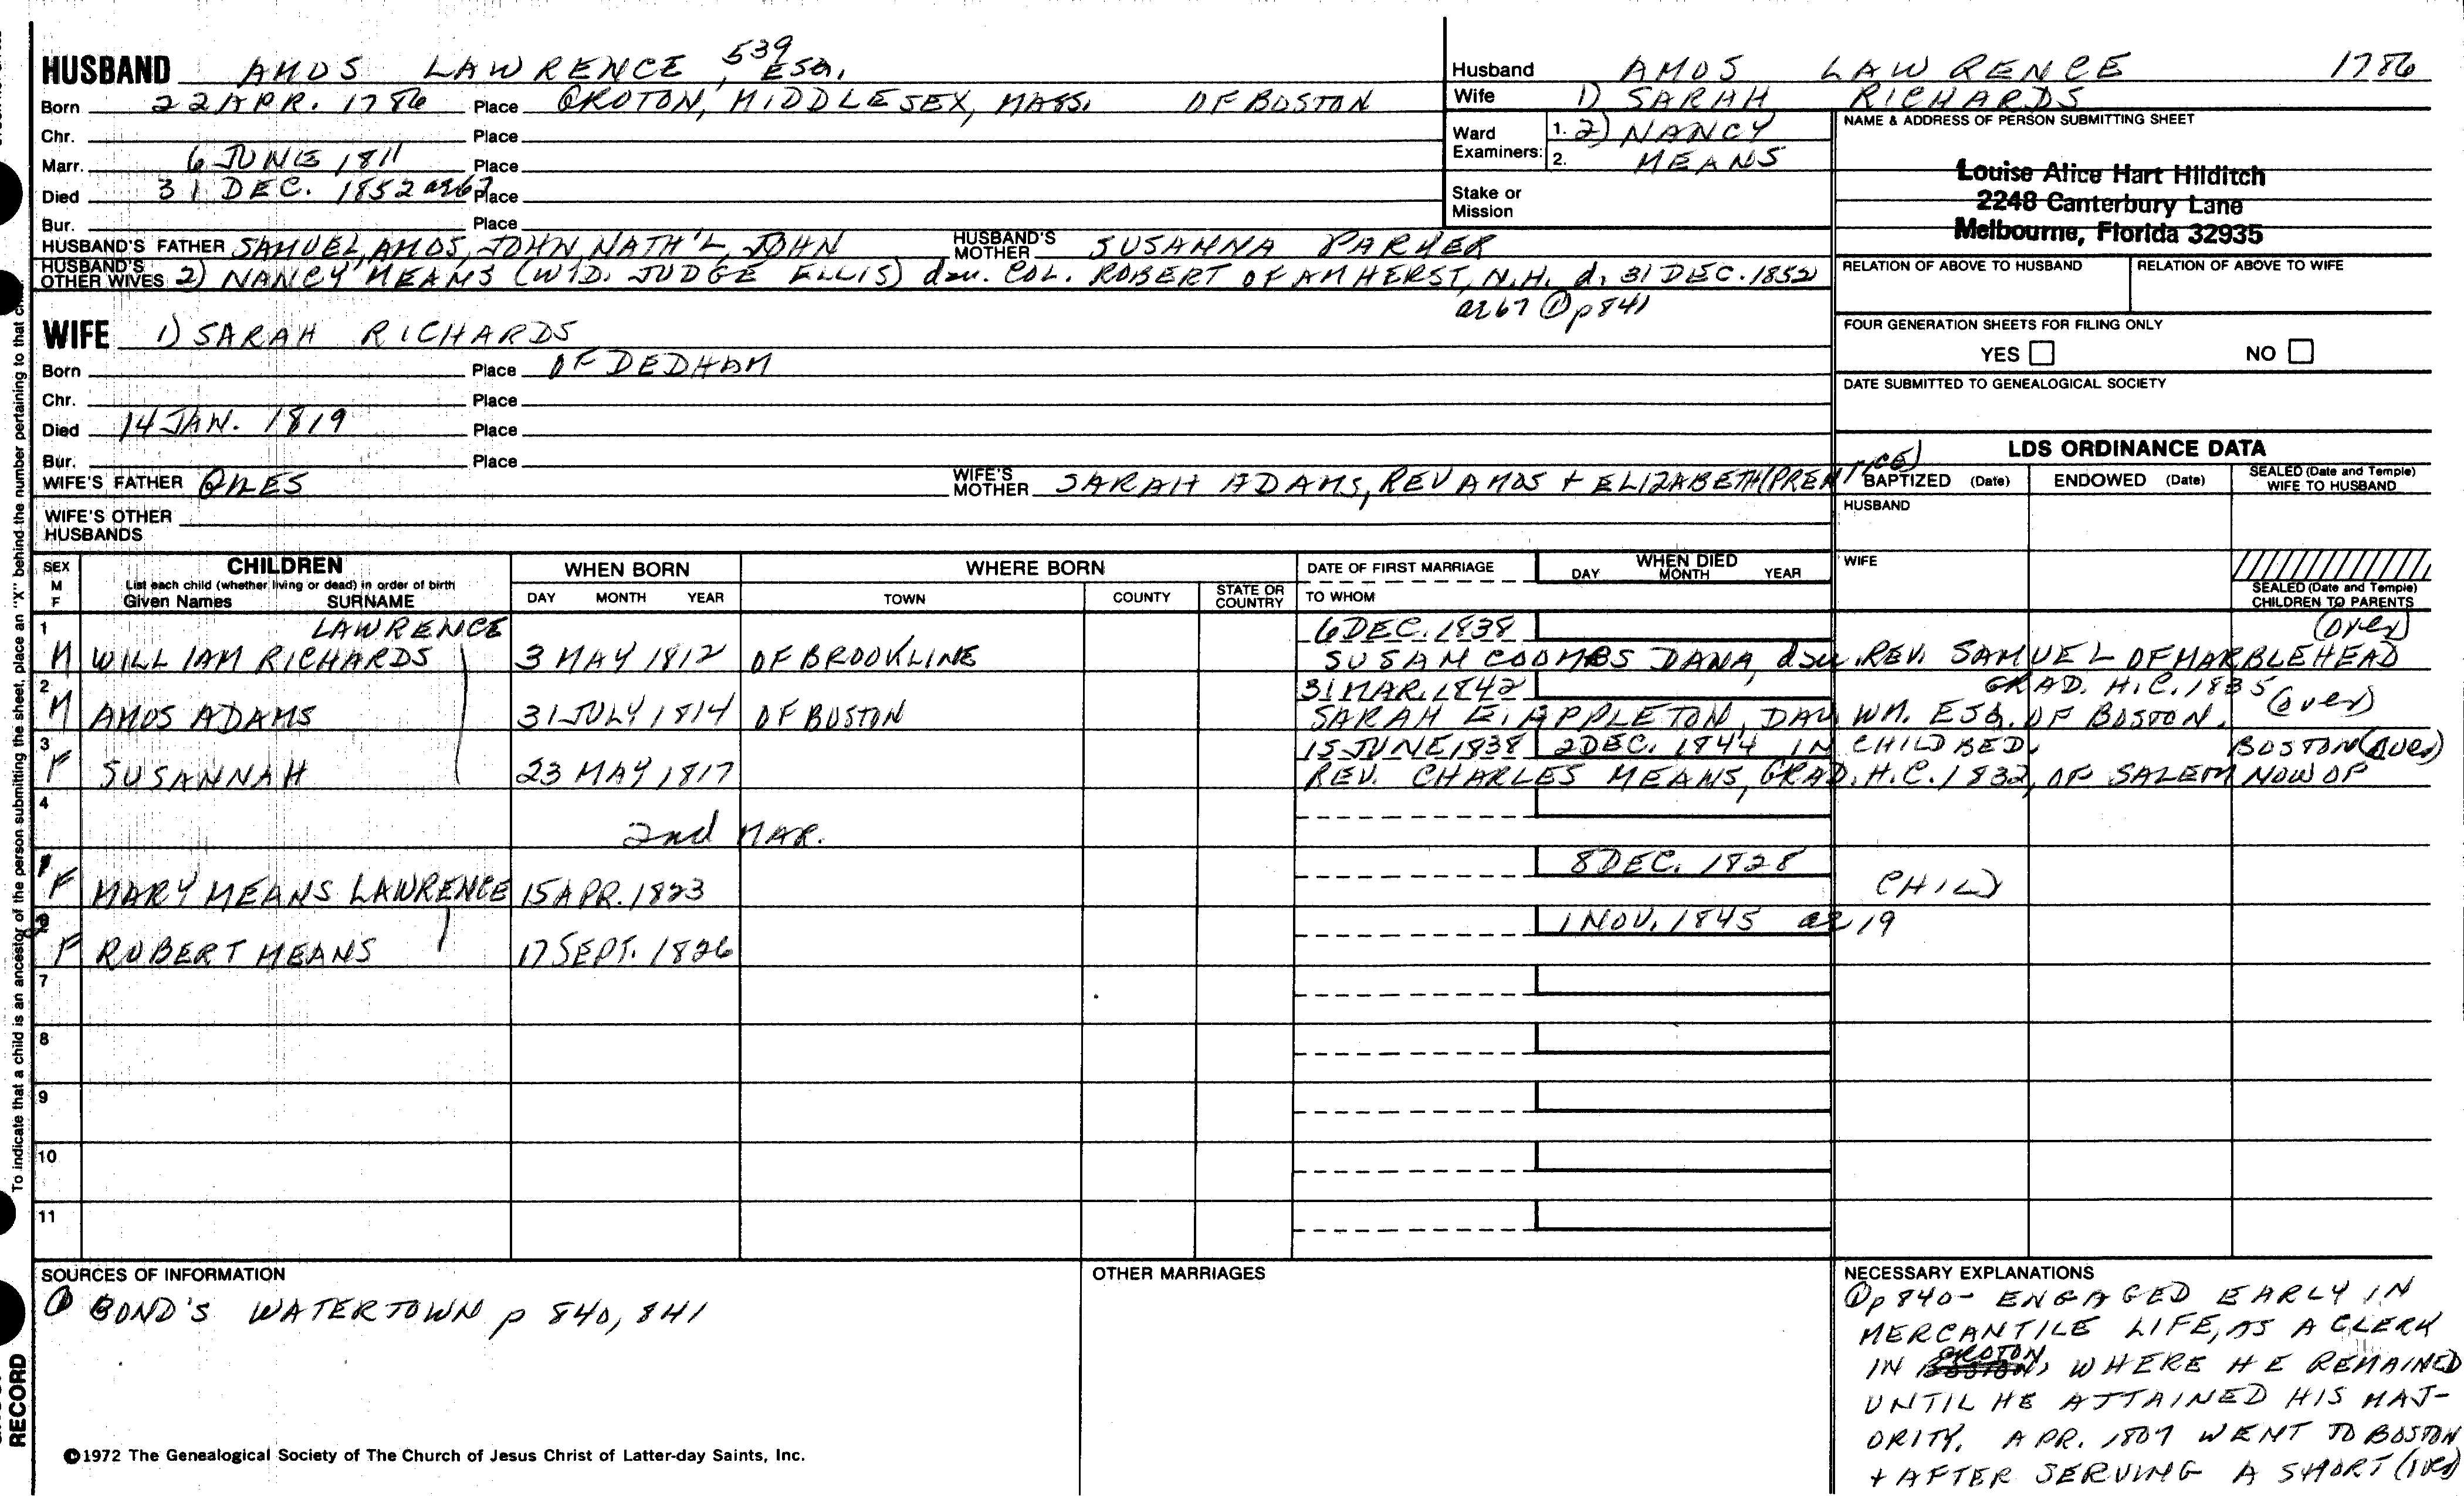 539
HUSBAND AMOS LAWRENCE, ESQ.
Born 22 APR. 1786 Place GROTON, MIDDLESEX, MASS. OF BOSTON
Chr. Place
Marr. 6 JUNE 1811 Place
Died 31 DEC. 1852 ae 67 Place
Bur. Place
HUSBAND'S FATHER SAMUEL, AMOS, JOHN, NATH'L, JOHN HUSBAND'S MOTHER SUSANNA PARKER
HUSBAND'S OTHER WIVES 2) NANCY MEANS (WID. JUDGE ELLIS) dau. COL. ROBERT OF AMHERST, N.H. d. 31 DEC. 1852
ae 67 ① p 841
WIFE 1) SARAH RICHARDS
Born Place OF DEDHAM
Chr. Place
Died 14 JAN. 1819 Place
Bur. Place
WIFE'S FATHER GILES WIFE'S MOTHER SARAH ADAMS, REV AMOS + ELIZABETH (PRENTICE)
WIFE'S OTHER HUSBANDS
Husband AMOS LAWRENCE 1786
Wife 1) SARAH RICHARDS
Ward Examiners: 1. 2) NANCY
2. MEANS
Stake or Mission
NAME & ADDRESS OF PERSON SUBMITTING SHEET
Louise Alice Hart Hilditch
2248 Canterbury Lane
Melbourne, Florida 32935
RELATION OF ABOVE TO HUSBAND RELATION OF ABOVE TO WIFE
FOUR GENERATION SHEETS FOR FILING ONLY
YES NO
DATE SUBMITTED TO GENEALOGICAL SOCIETY
LDS ORDINANCE DATA
BAPTIZED (Date) ENDOWED (Date) SEALED (Date and Temple) WIFE TO HUSBAND
HUSBAND
WIFE
SEALED (Date and Temple) CHILDREN TO PARENTS
SEX M F
CHILDREN
List each child (whether living or dead) in order of birth
Given Names SURNAME
WHEN BORN
DAY MONTH YEAR
WHERE BORN
TOWN COUNTY STATE OR COUNTRY
DATE OF FIRST MARRIAGE
TO WHOM
WHEN DIED
DAY MONTH YEAR
1 LAWRENCE 6 DEC. 1838 (over)
M WILLIAM RICHARDS 3 MAY 1812 OF BROOKLINE SUSAN COOMBS DANA, dau. REV. SAMUEL OF MARBLEHEAD
2 31 MAR. 1842 GRAD. H.C. 1835 (over)
M AMOS ADAMS 31 JULY 1814 OF BOSTON SARAH E. APPLETON, DAU WM. ESQ. OF BOSTON.
3 15 JUNE 1838 2 DEC. 1844 IN CHILDBED. BOSTON (over)
F SUSANNAH 23 MAY 1817 REV. CHARLES MEANS, GRAD. H.C. 1832, OF SALEM NOW OF
4
2nd MAR.
1 8 DEC. 1828
F MARY MEANS LAWRENCE 15 APR. 1823 CHILD
2 1 NOV. 1845 ae 19
F ROBERT MEANS 17 SEPT. 1826
7
8
9
10
11
SOURCES OF INFORMATION
① BOND'S WATERTOWN p 840, 841
OTHER MARRIAGES
NECESSARY EXPLANATIONS
① p 840 - ENGAGED EARLY IN
MERCANTILE LIFE, AS A CLERK
IN BOSTON GROTON, WHERE HE REMAINED
UNTIL HE ATTAINED HIS MAJ-
ORITY. APR. 1807 WENT TO BOSTON
+ AFTER SERVING A SHORT (over)
©1972 The Genealogical Society of The Church of Jesus Christ of Latter-day Saints, Inc.
To indicate that a child is an ancestor of the person submitting the sheet, place an "X" behind the number pertaining to that child.
RECORD